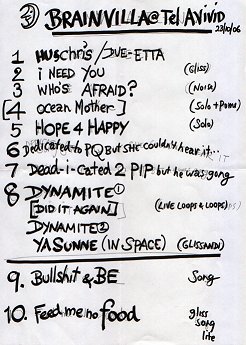 ③ BRAINVILLA@Tel AVIVID
23/10/06
1 HUSchris/DUE-ETTA
2 i NEED YOU (Gliss)
3 WHO'S AFRAID? (Noisa)
[4 ocean Mother] (Solo + Pome)
5 HOPE 4 HAPPY (Solo)
6 Dedicated to PQ/But SHE couldn't hear it...it
7 Dead-i-cated 2 PIP but he was gong
8 DYNAMITE①
[DiD iT AGAiN] (LIVE LOOPS & LOOPS)
DYNAMITE②
YA SUNNE (IN SPACE) (GLISSANDI)
9. Bullshit & BE Song
10. Feed me no Food gliss
song
lite